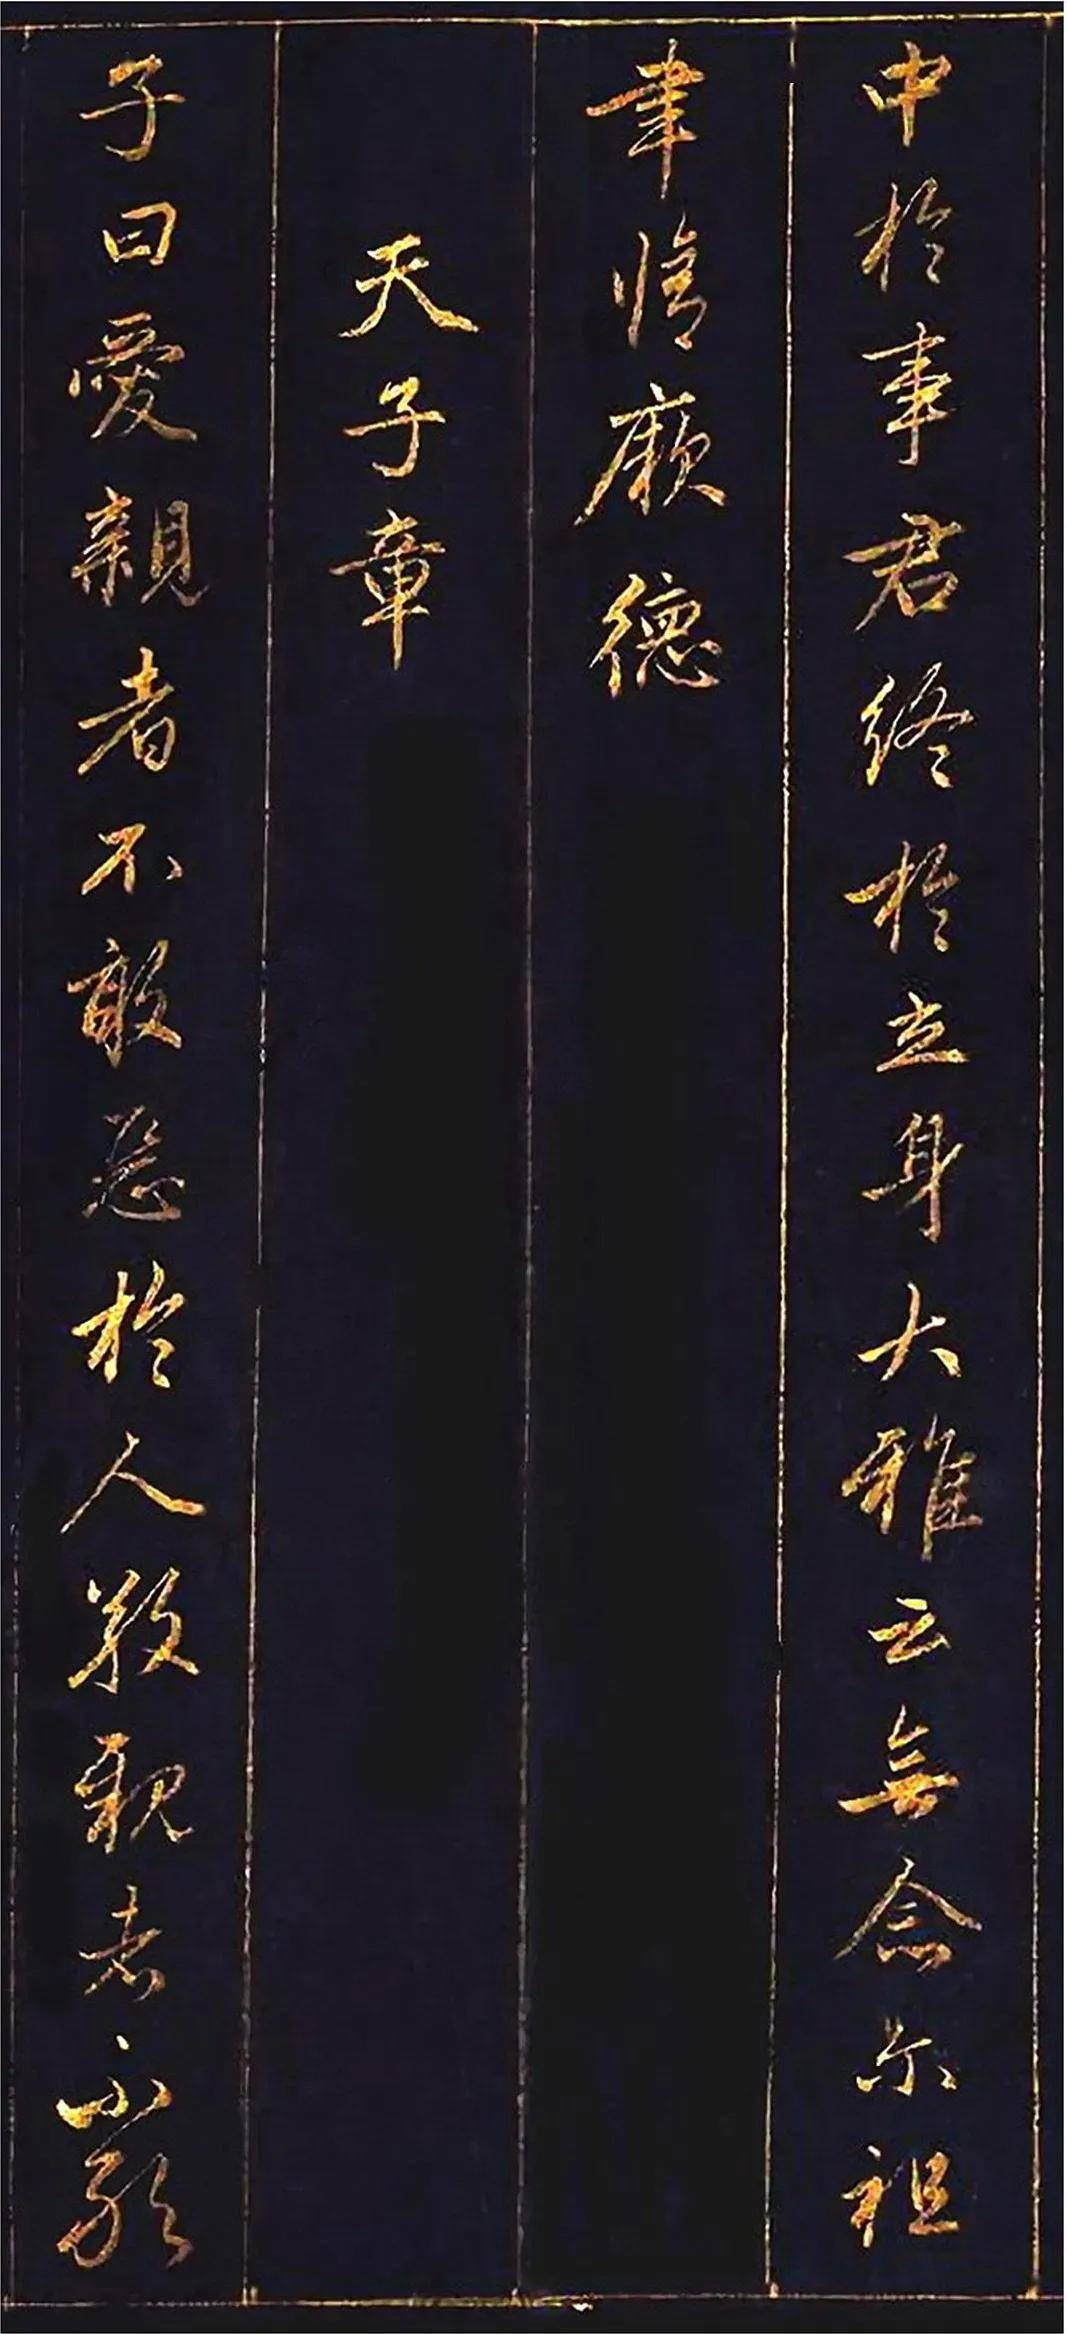 中於事君終於立身大雅云無念尔祖
聿脩厥德
天子章
子曰愛親者不敢惡於人敬親者不敢